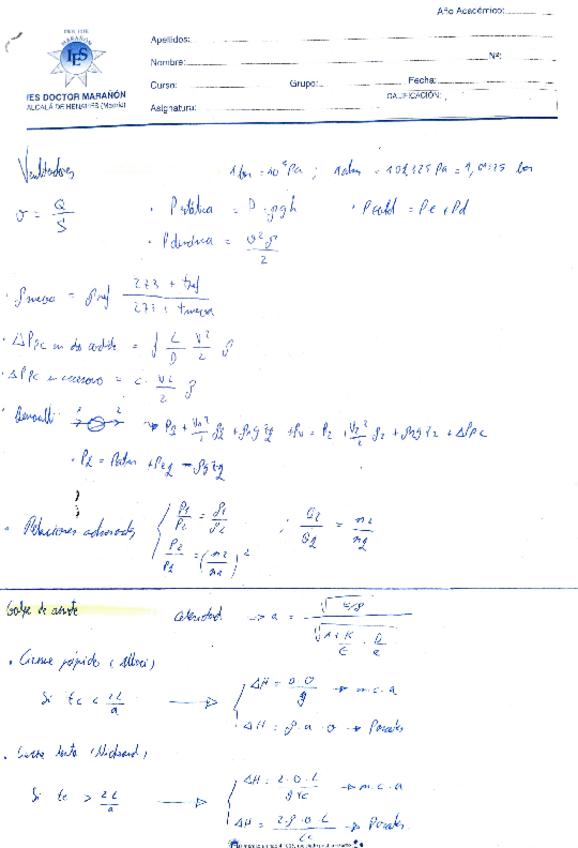 Año Académico:
IES DOCTOR MARAÑÓN
ALCALÁ DE HENARES (Madrid)
Apellidos:
Nombre: Nº:
Curso: Grupo: Fecha:
Asignatura: CALIFICACIÓN:
Ventiladores
1 bar = 10⁵ Pa ; 1 atm = 101325 Pa = 1,01325 bar
v = Q/S
· P estática = P - ρgh
· P total = Pe + Pd
· P dinámica = v²ρ/2
· ρ nueva = ρ ref (273 + t ref)/(273 + t nueva)
· ΔPpc en conducto = f L/D v²/2 ρ
· ΔPpc en accesorio = c · v²/2 ρ
· Bernoulli 1 2 → P1 + v1²/2 ρ1 + ρ1 g z1 + Pv = P2 + v2²/2 ρ2 + ρ2 g z2 + ΔPpc
· P1 = Patm + Pe1 - ρ g z1
· Relaciones P1/P2 = ρ1/ρ2 ; Q2/Q1 = n2/n1
P2/P1 = (n2/n1)²
Golpe de ariete
Celeridad → a =
· Cierre rápido (Allievi)
Si tc < 2L/a → ΔH = a·v/g → m.c.a
ΔH = ρ · a · v → Pascales
· Cierre lento (Michaud)
Si tc > 2L/a → ΔH = 2·v·L/g tc → m.c.a
ΔH = 2·ρ·v·L/tc → Pascales